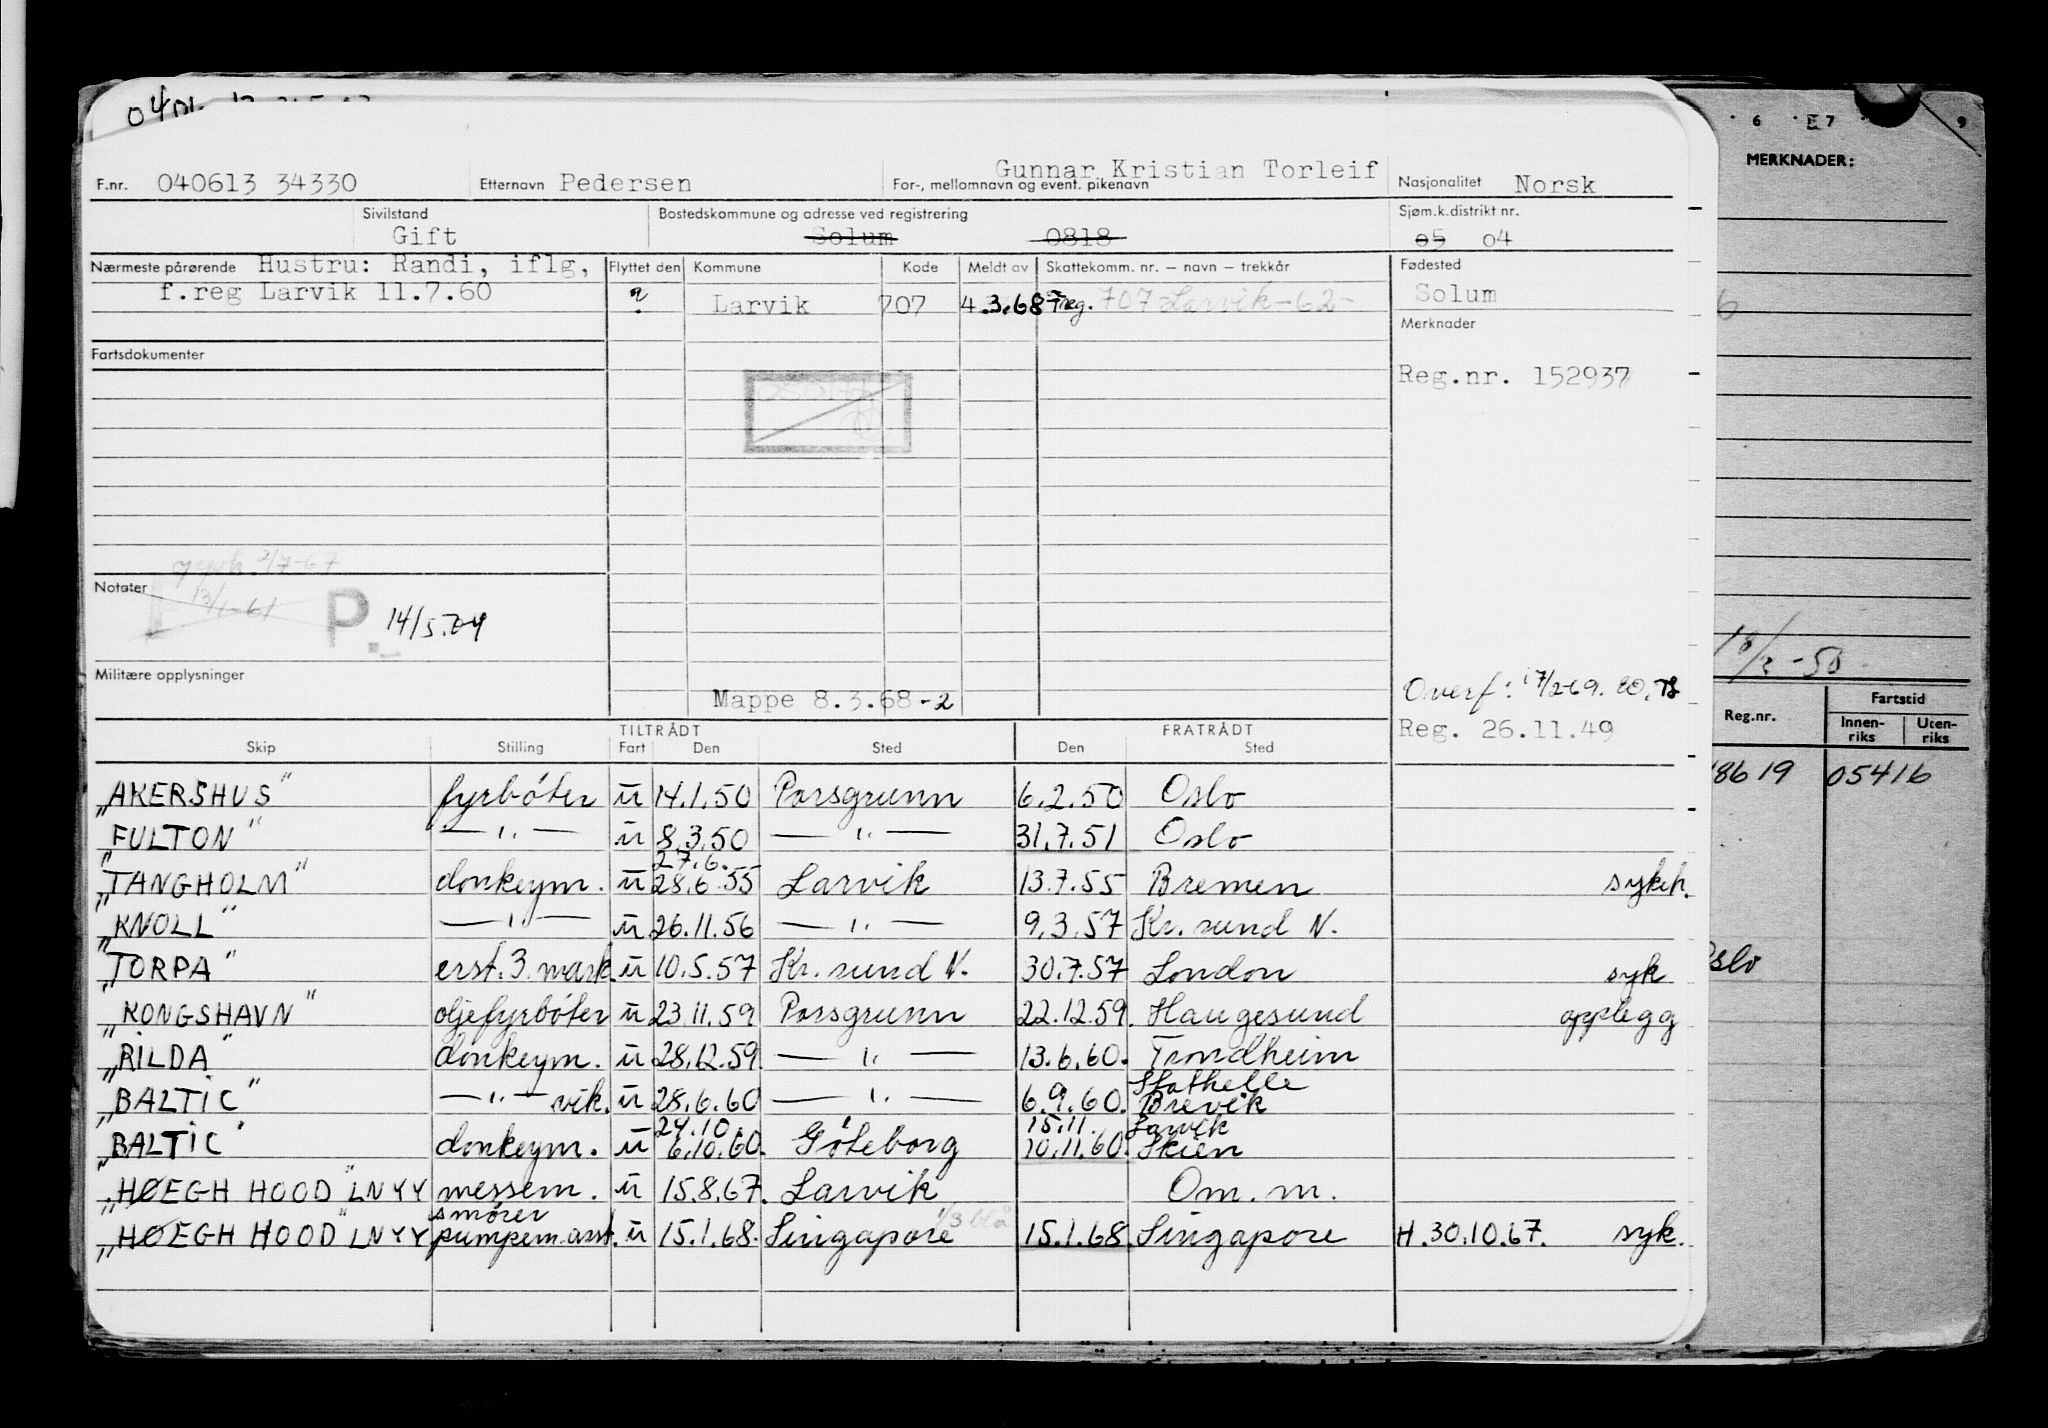 F.nr. 040613 34330 Etternavn Pedersen For-, mellomnavn og event. pikenavn Gunnar Kristian Torleif Nasjonalitet Norsk
Sivilstand Gift Bostedskommune og adresse ved registrering Solum 0818 Sjøm.k.distrikt nr. 05 04
Nærmeste pårørende Hustru: Randi, iflg, Flyttet den Kommune Kode Meldt av Skattekomm. nr. – navn – trekkår Fødested
f.reg Larvik 11.7.60 ? Larvik 707 4.3.68 Freg. 707 Larvik-62- Solum
Merknader
Fartsdokumenter
Reg.nr. 152937
Notater
13/1-61
P. 14/5.04
Militære opplysninger
Mappe 8.3.68-2
Overf: 17/2-69. EO,
Reg. 26.11.49
TILTRÅDT FRATRÅDT
Skip Stilling Fart Den Sted Den Sted
„AKERSHUS" fyrbøter u 14.1.50 Porsgrunn 6.2.50 Oslo
„FULTON" —"— u 8.3.50 —"— 31.7.51 Oslo
27.6.
„TANGHOLM" donkeym. u 28.6.55 Larvik 13.7.55 Bremen sykeh.
„KNOLL" —"— u 26.11.56 —"— 9.3.57 Kr.sund N.
„TORPA" erst.3.mask. u 10.5.57 Kr.sund N. 30.7.57 London syk
„KONGSHAVN" oljefyrbøter u 23.11.59 Porsgrunn 22.12.59. Haugesund opplegg
„RILDA" donkeym. u 28.12.59. —"— 13.6.60. Trondheim
Stathelle
„BALTIC" —"— vik. u 28.6.60 —"— 6.9.60. Brevik
24.10. 15.11. Larvik
„BALTIC" donkeym. u 6.10.60. Göteborg 10.11.60. Skien
„HØEGH HOOD" LNYY messem. u 15.8.67. Larvik Om.m.
smører
„HØEGH HOOD" LNYY pumpem.asst. u 15.1.68. Singapore 15.1.68. Singapore H.30.10.67. syk.
6 7 9
MERKNADER:
18/2-50
Reg.nr. Fartstid
Innen-riks Uten-riks
8619 05416
Oslo